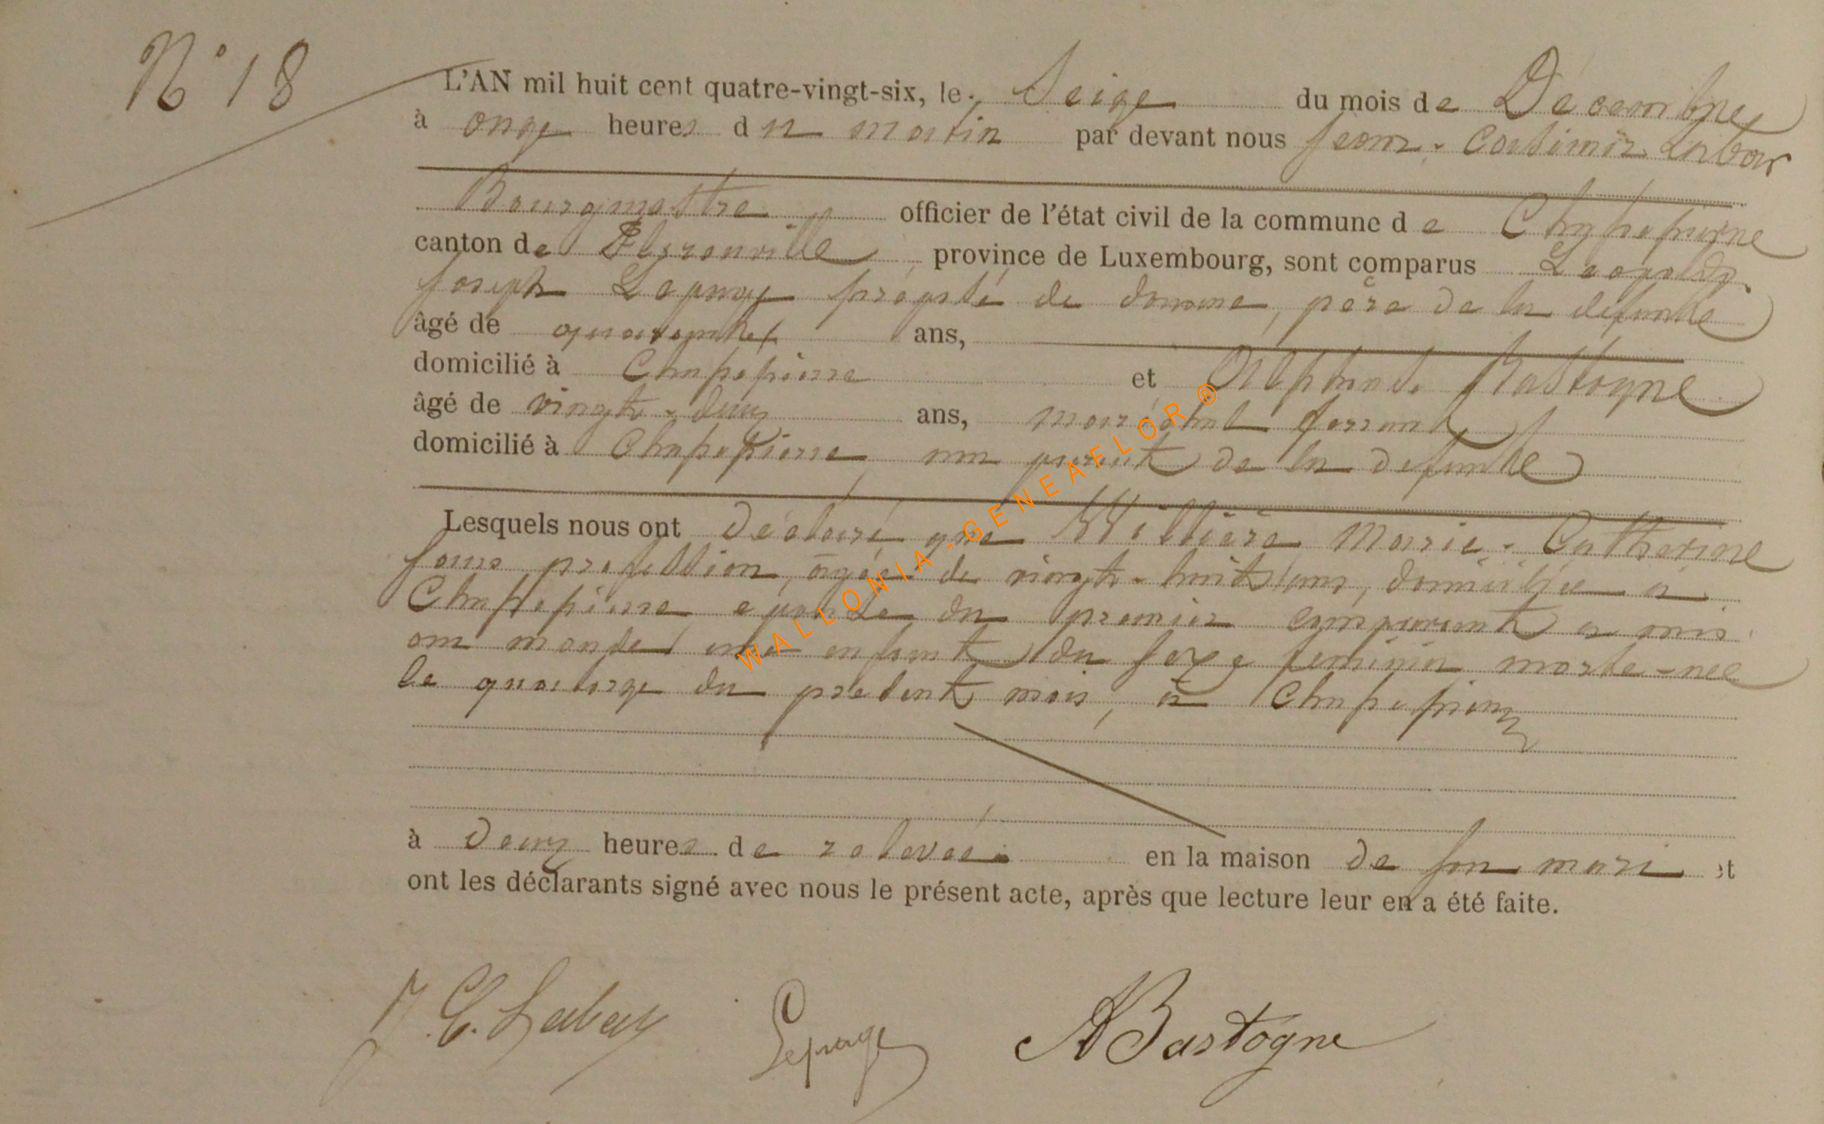 N° 18
L'AN mil huit cent quatre-vingt-six, le Seize du mois de Décembre
à onze heures du matin par devant nous Jean-Casimir Labar
Bourgmestre officier de l'état civil de la commune de Chassepierre
canton de Florenville province de Luxembourg, sont comparus Léopold
Joseph Lepage préposé de douane, père de la défunte
âgé de quarante ans,
domicilié à Chassepierre et Alphonse Bastogne
âgé de vingt-deux ans, maréchal ferrant
domicilié à Chassepierre non parent de la défunte
Lesquels nous ont déclaré que Marie-Catherine
sans profession, âgée de vingt-huit ans, domiciliée à
Chassepierre épouse du premier comparant a mis
au monde un enfant du sexe féminin morte-née
le quatorze du présent mois, à Chassepierre
à deux heures de relevée en la maison de son mari et
ont les déclarants signé avec nous le présent acte, après que lecture leur en a été faite.
J. C. Labar Lepage ABastogne
WALLONIA-GENEAFLOR®